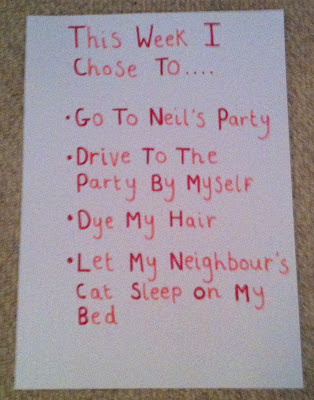 This Week I
Chose To....
• Go To Neil's Party
• Drive To The
Party By Myself
• Dye My Hair
• Let My Neighbour's
Cat Sleep On My
Bed